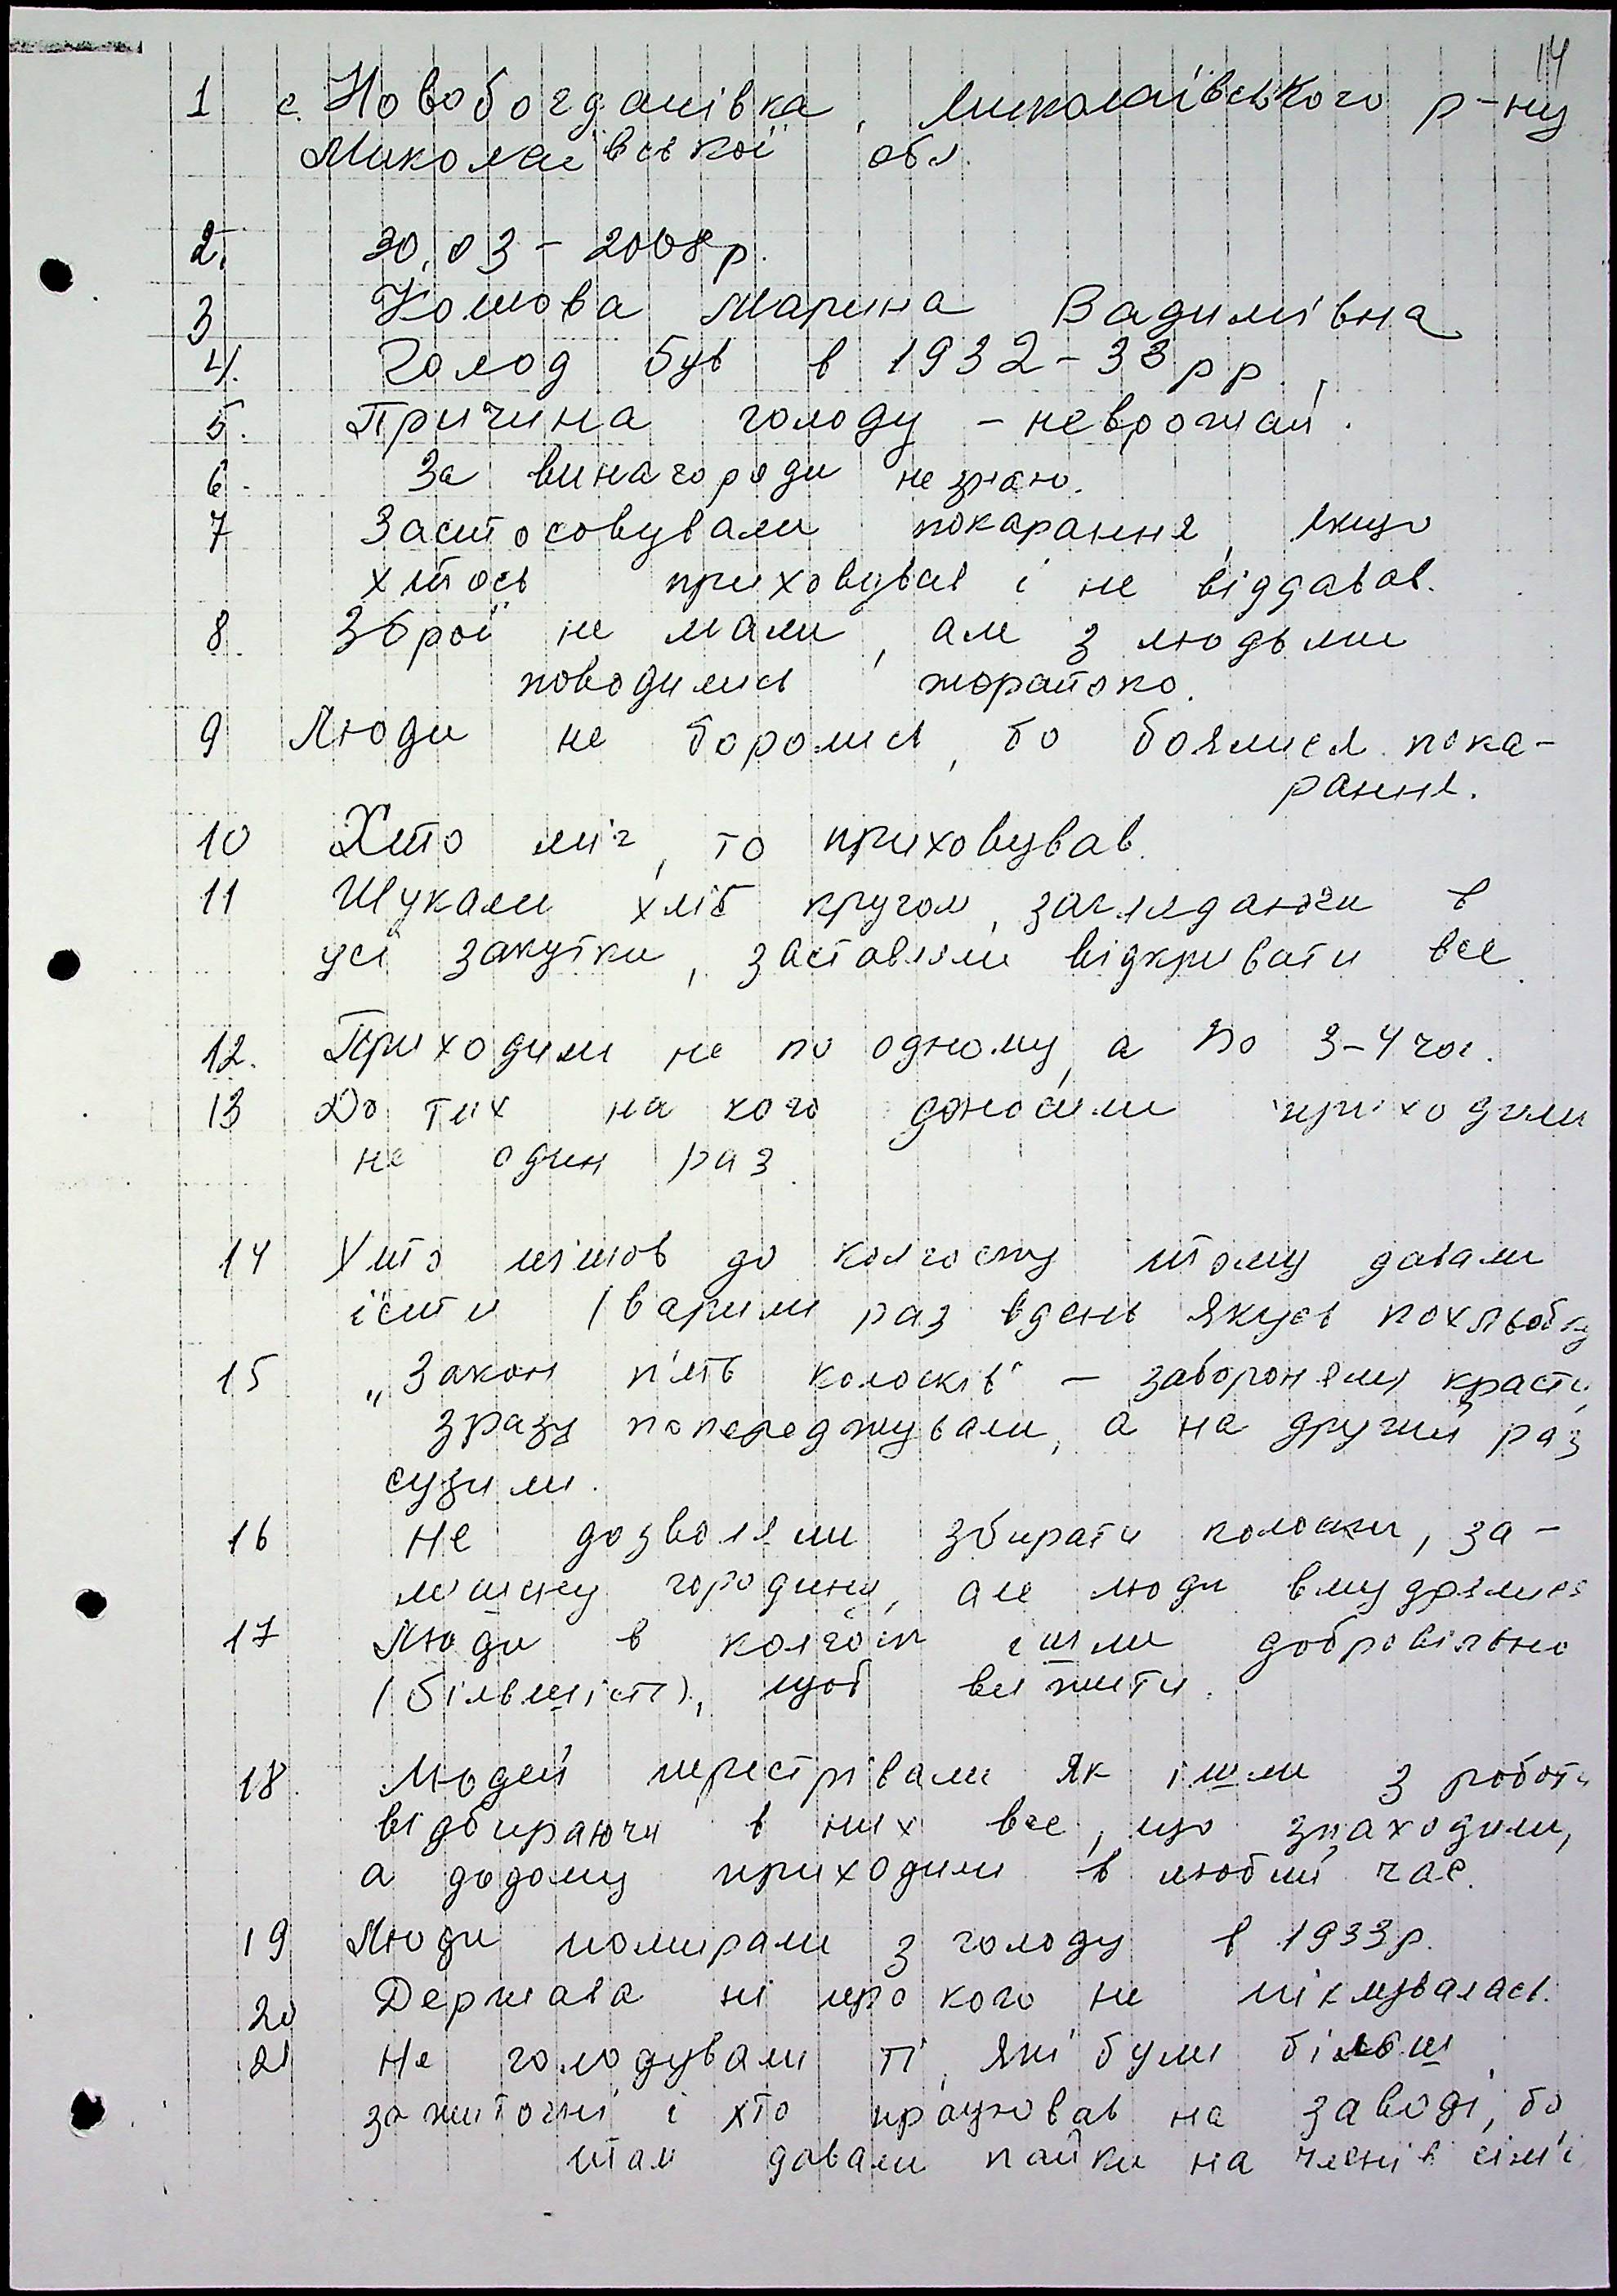 14
1 с. Новобогданівка, Миколаївського р-ну
Миколаївської обл.
2. 30.03 - 2008р.
3 Комова Марина Вадимівна
4. Голод був в 1932-33 рр.
5. Причина голоду - неврожай.
6. За винагороди не знаю.
7 Застосовували покарання, якщо
хтось приховував і не віддавав.
8. Зброї не мали, але з людьми
поводились жорстоко.
9 Люди не боролись, бо боялися пока-
рання.
10 Хто міг, то приховував.
11 Шукали хліб кругом, заглядаючи в
усі закутки, заставляли відкривати все.
12. Приходили не по одному, а по 3-4 чол.
13 До тих на кого доносили приходили
не один раз.
14 Хто пішов до колгоспу тому давали
їсти (варили раз вдень якусь похльобку
15 „Закон п'ять колосків" - забороняли красти,
зразу попереджували, а на другий раз
судили.
16 Не дозволяли збирати колоски, за-
лишки городини, але люди вмудрялися
17 Люди в колгосп ішли добровільно
(більшість), щоб вижити.
18. Людей перестрівали як ішли з роботи
відбираючи в них все, що знаходили,
а додому приходили в любий час.
19 Люди помирали з голоду в 1933р.
20 Держава ні про кого не піклувалась.
21 Не голодували ті, які були більш
зажиточні і хто працював на заводі, бо
там давали пайки на членів сім'ї